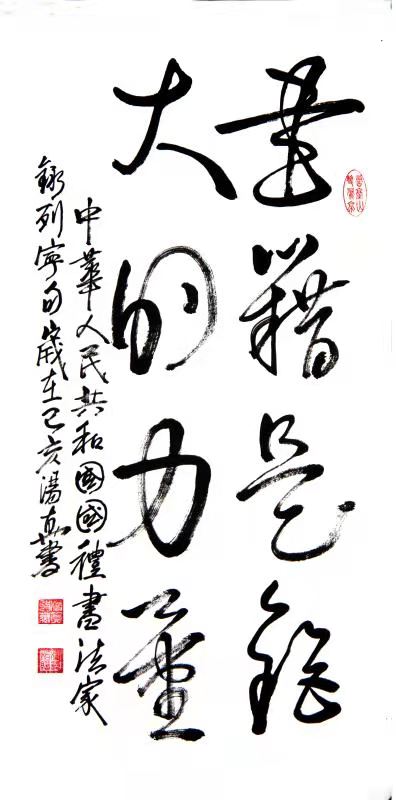 書籍是鉅
大的力量
中華人民共和國國禮書法家
錄列寧句歲在己亥湯書